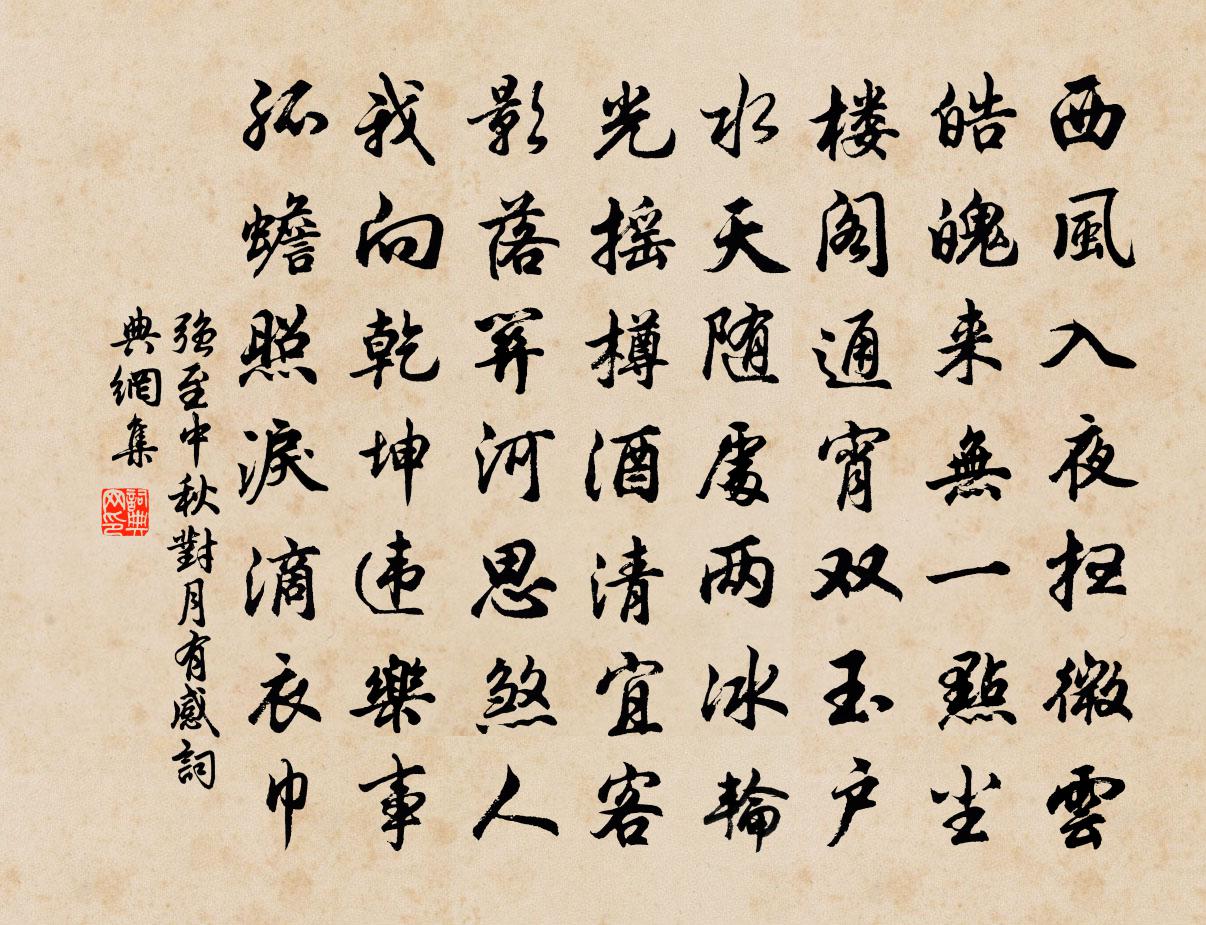 西風入夜扫微雲
皓魄来無一點尘
楼阁通宵双玉户
水天随處两冰輪
光摇樽酒清宜客
影落関河思煞人
我向乾坤违樂事
孤蟾照淚滴衣巾
強至中秋對月有感詞
典網集
詞典网印